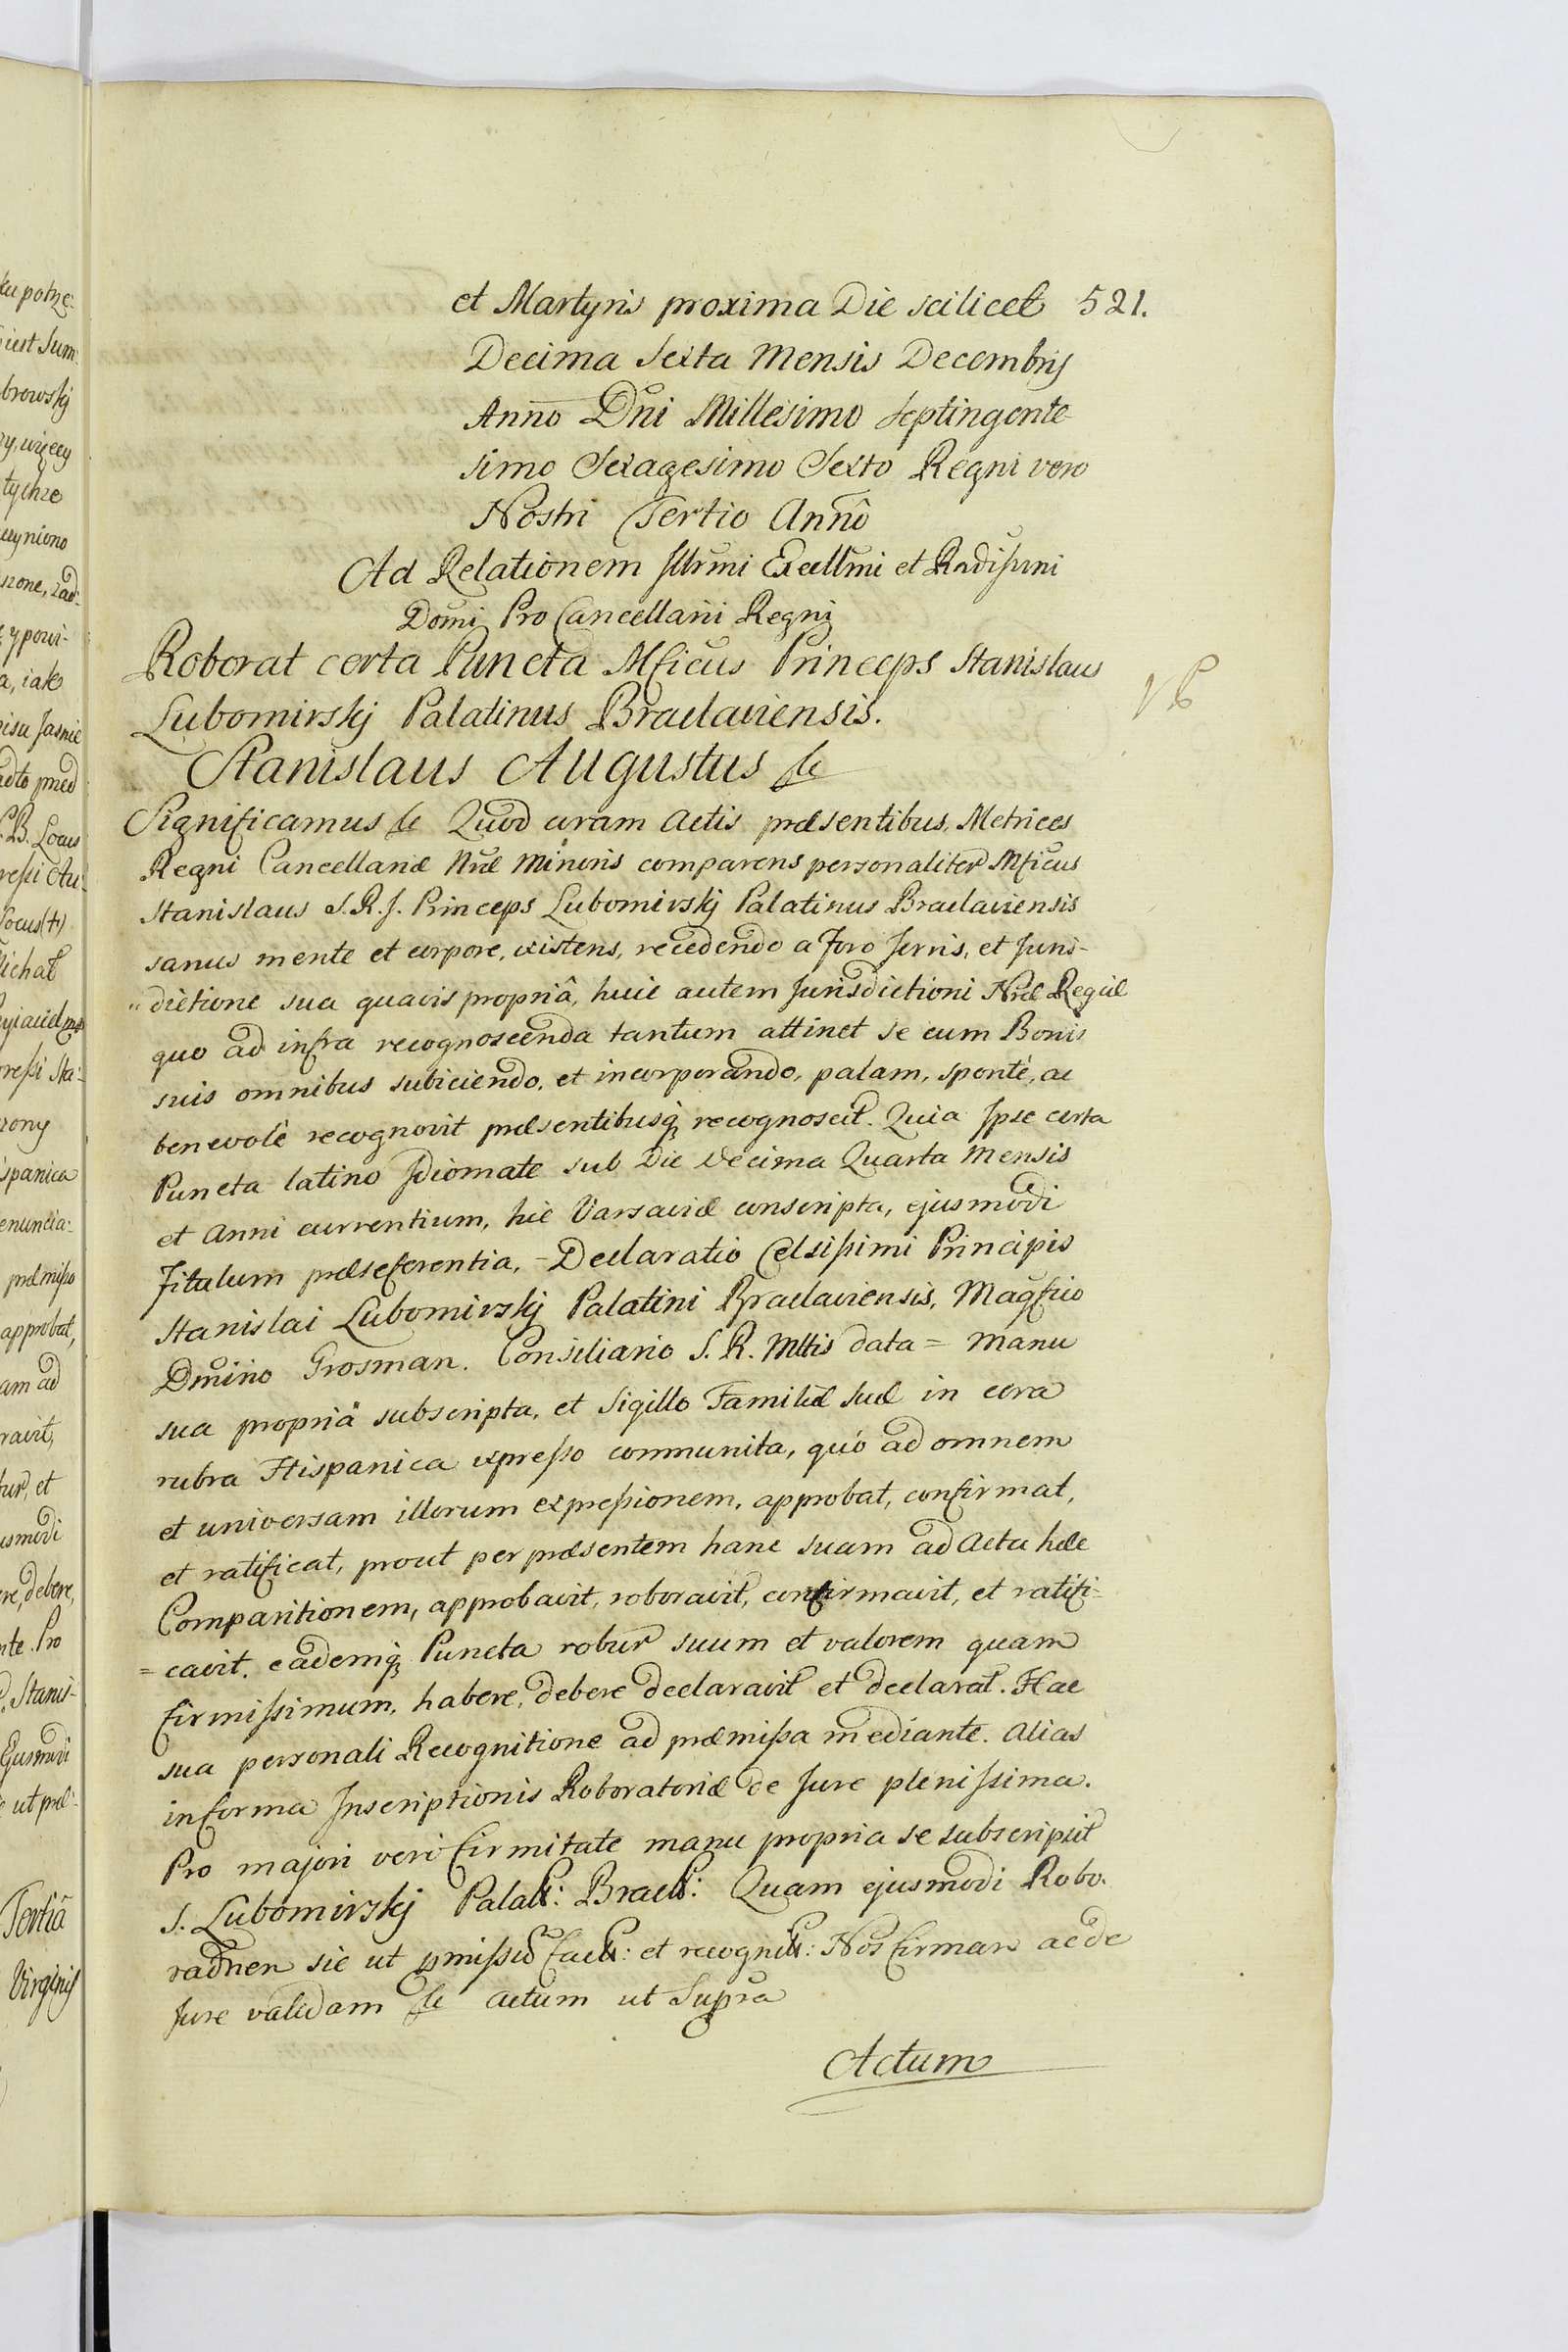 et Martyris proxima Die scilicet 521.
Decima Sexta Mensis Decembrij
Anno Dni Millesimo Septingente-
simo Sexagesimo Sexto Regni vero
Nostri Tertio Annô
Ad Relationem Illrmi Excellmi et Rndissmi
Domi Pro Cancellarii Regni
Roborat certa Puncta Mficus Princeps Stanislaus
Lubomirskj Palatinus Braclaviensis.
Stanislaus Augustus &c
Significamus &c Quod coram Actis præsentibus, Metrices
Regni Cancellariæ Nræ Minoris comparens personaliter Mficus
Stanislaus S. R. J. Princeps Lubomirskj Palatinus Braclaviensis
sanus mente et corpore, existens, recedendo a Foro Terris, et Juris-
"dictione sua quavis propriâ, huic autem Jurisdictioni Nræ Regiæ
quo ad infra recognoscenda tantum attinet se cum Bonis
suis omnibus subiciendo, et incorporando, palam, spontè, ac
benevolè recognovit præsentibusq; recognoscit. Quia Ipse certa
Puncta latino Idiomate sub Die Decima Quarta Mensis
et Anni currentium, hic Varsaviæ conscripta, ejusmodi
Titulum præseferentia, - Declaratio Celsissimi Principis
Stanislai Lubomirskj Palatini Braclaviensis, Magfico
Dmino Grosman. Consiliario S. R. Mttis data = Manu
sua propriâ subscripta, et Sigillo Familiæ Suæ in cera
rubra Hispanica expresso communita, quò ad omnem
et universam illorum expressionem, approbat, confirmat,
et ratificat, prout per præsentem hanc suam ad Acta hæc
Comparitionem, approbavit, roboravit, confirmavit, et ratifi-
=cavit, eademq; Puncta robur suum et valorem quam
firmissimum, habere, debere declaravit et declarat. Hac
sua personali Recognitione ad præmissa mediante. Alias
informa Inscriptionis Roboratoriæ de Jure plenissima.
Pro majori vero firmitate manu propria se subscripsit
S. Lubomirskj Palatt: Bractt: Quam ejusmodi Robo-
raonen sic ut pmissu factt: et recognitt: Nos firmam ac de
Jure validam &c Actum ut Supra
Actum